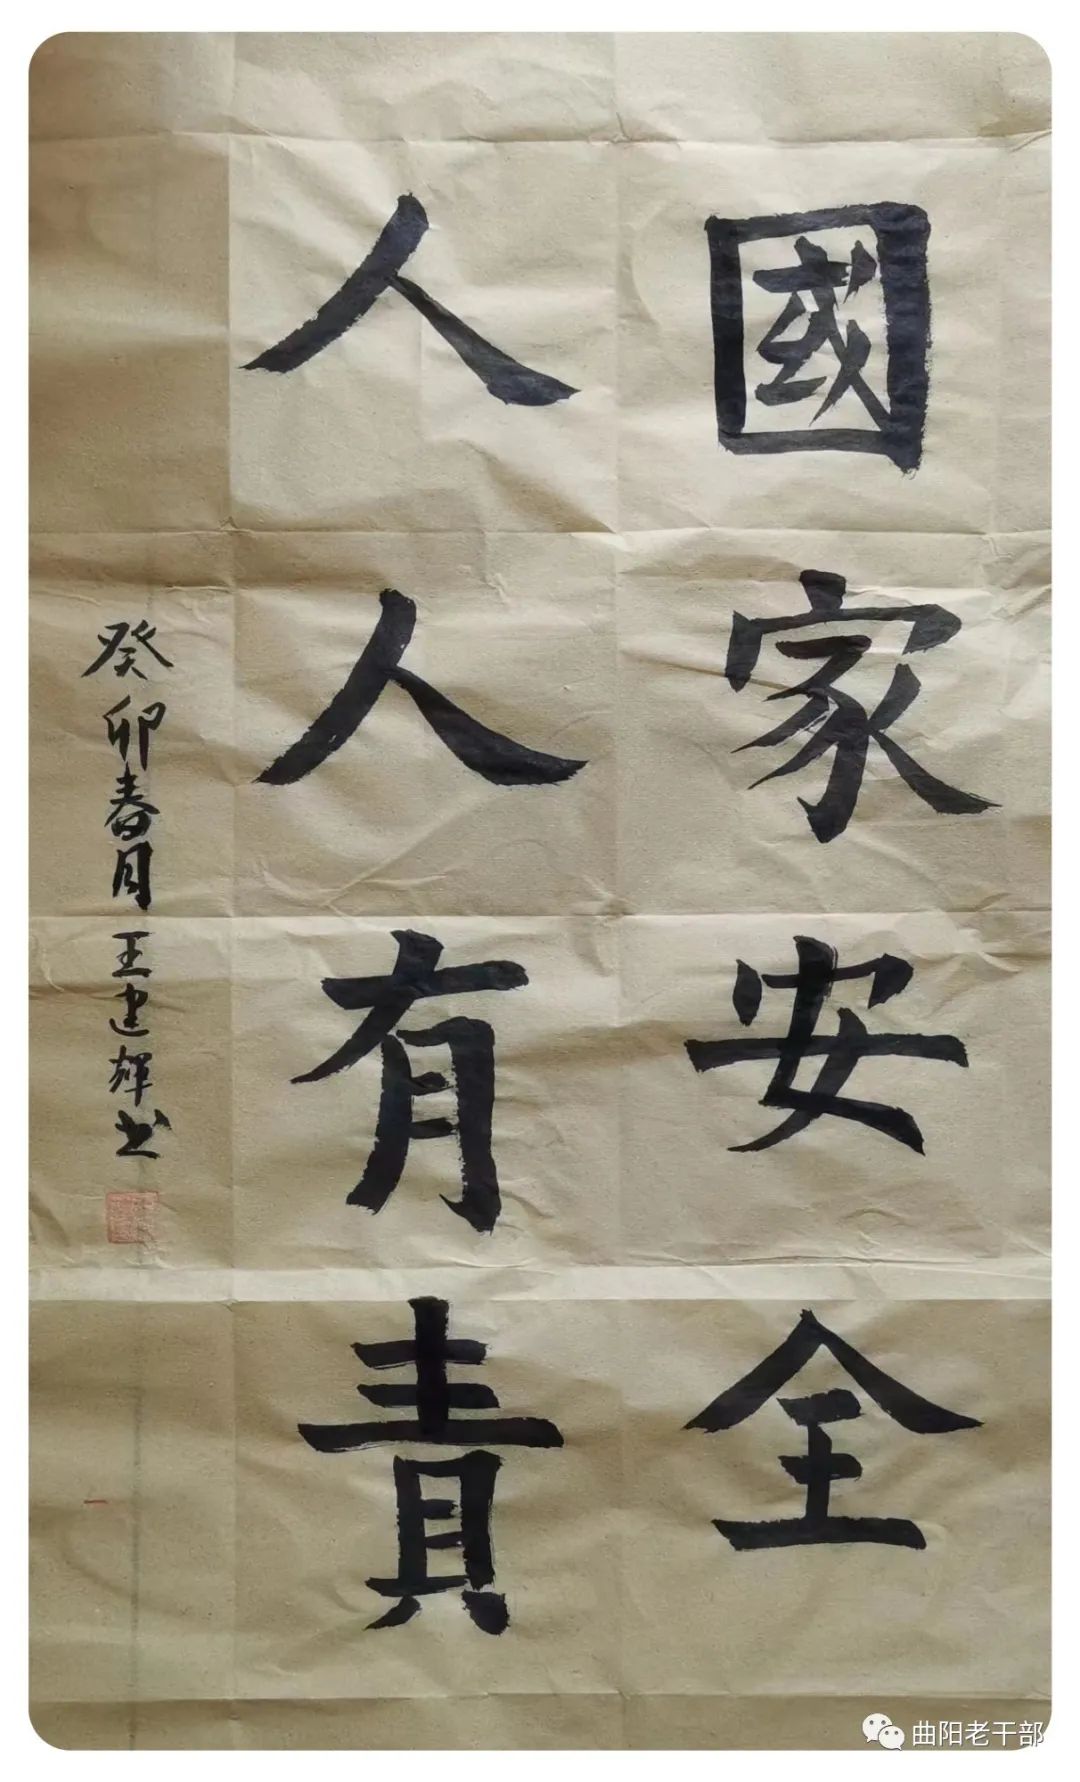 國家安全
人人有責
癸卯春月王建輝书
曲阳老干部